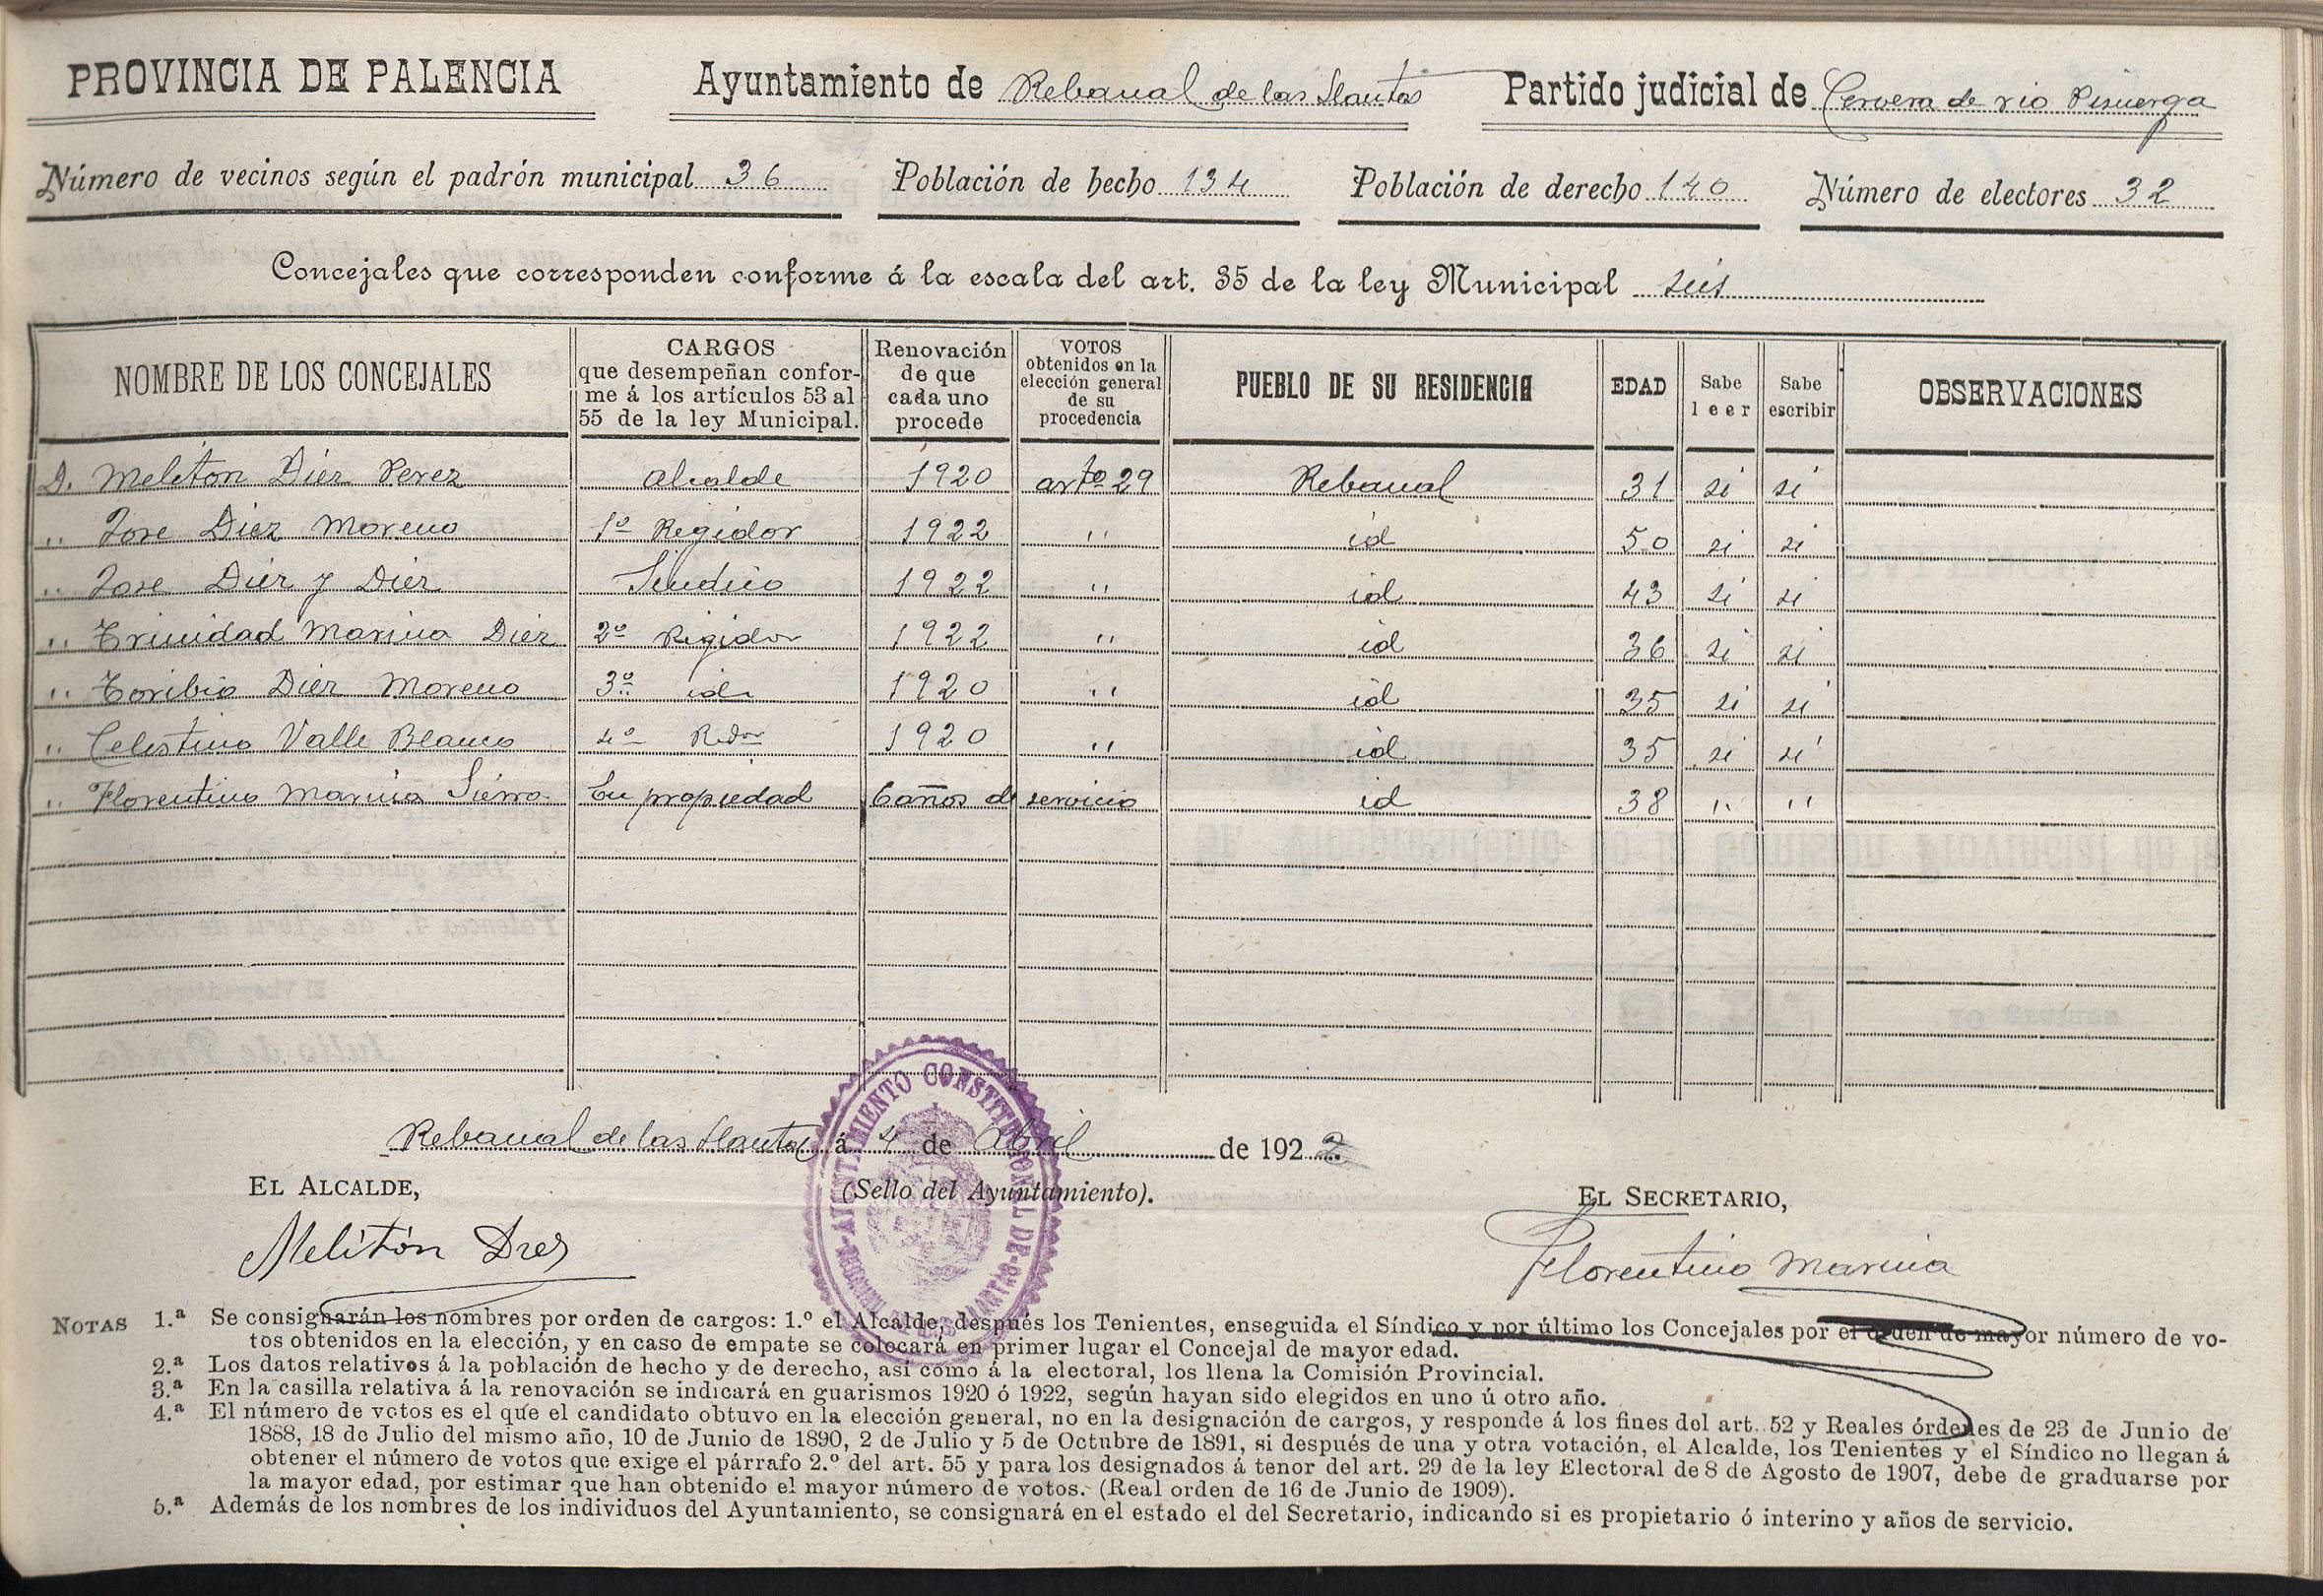 PROVINCIA DE PALENCIA Ayuntamiento de Rebanal de las Llantas Partido judicial de Cervera de rio Pisuerga
Número de vecinos según el padrón municipal 36 Población de hecho 134 Población de derecho 140 Número de electores 32
Concejales que corresponden conforme á la escala del art. 35 de la ley Municipal seis
NOMBRE DE LOS CONCEJALES
CARGOS
que desempeñan confor-
me á los artículos 53 al
55 de la ley Municipal.
Renovación
de que
cada uno
procede
VOTOS
obtenidos en la
elección general
de su
procedencia
PUEBLO DE SU RESIDENCIA
EDAD
Sabe
leer
Sabe
escribir
OBSERVACIONES
D. Meliton Diez Perez Alcalde 1920 arto 29 Rebanal 31 si si
" Jose Diez Moreno 1º Regidor 1922 " id 50 si si
" Jose Diez y Diez Sindico 1922 " id 43 si si
" Trinidad Marina Diez 2º Regidor 1922 " id 36 si si
" Toribio Diez Moreno 3º id 1920 " id 35 si si
" Celestino Valle Blanco 4º Rdor 1920 " id 35 si si
" Florentino Marina Sierra En propiedad 6 años de servicio id 38 " "
Rebanal de las Llantas á 4 de Abril de 1922
EL ALCALDE,
(Sello del Ayuntamiento).
EL SECRETARIO,
AYUNTAMIENTO CONSTITUCIONAL DE
Melitón Diez
Florentino Marina
NOTAS 1.ª Se consignarán los nombres por orden de cargos: 1.º el Alcalde, después los Tenientes, enseguida el Síndico y por último los Concejales por el orden de mayor número de vo-
tos obtenidos en la elección, y en caso de empate se colocará en primer lugar el Concejal de mayor edad.
2.ª Los datos relativos á la población de hecho y de derecho, así como á la electoral, los llena la Comisión Provincial.
3.ª En la casilla relativa á la renovación se indicará en guarismos 1920 ó 1922, según hayan sido elegidos en uno ú otro año.
4.ª El número de votos es el que el candidato obtuvo en la elección general, no en la designación de cargos, y responde á los fines del art. 52 y Reales órdenes de 23 de Junio de
1888, 18 de Julio del mismo año, 10 de Junio de 1890, 2 de Julio y 5 de Octubre de 1891, si después de una y otra votación, el Alcalde, los Tenientes y el Síndico no llegan á
obtener el número de votos que exige el párrafo 2.º del art. 55 y para los designados á tenor del art. 29 de la ley Electoral de 8 de Agosto de 1907, debe de graduarse por
la mayor edad, por estimar que han obtenido el mayor número de votos. (Real orden de 16 de Junio de 1909).
5.ª Además de los nombres de los individuos del Ayuntamiento, se consignará en el estado el del Secretario, indicando si es propietario ó interino y años de servicio.